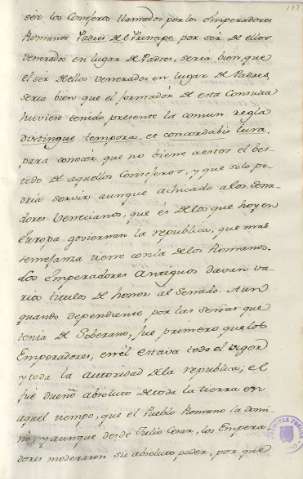 ser los Consejeros llamados por los Emperadores
Romanos Padres del Principe por ser de ellos
venerados en lugar de Padres, seria bien que
el ser dellos venerados en lugar de Padres,
seria bien que el formador de esta Consulta
huviese tenido presente la comun regla
distingue tempora, et concordabis iura,
para conocer que no tiene
de aquellos Consejeros, y que solo po
dria servir aunque achicado a los Sena
dores Venecianos, que es de los que hoy en
Europa goviernan la republica, que mas
semejanza tiene con la de los Romanos.
Los Emperadores Antiguos davan va
rios titulos de honor al Senado. Aun
quando dependiente por las señas que
tenia de Soberano, fue primero que los
Emperadores, en el estava todo el vigor
y toda la autoridad de la republica, el
fue dueño absoluto de toda la tierra en
aquel tiempo, que el Pueblo Romano la domi
nó, y aunque desde Julio Cesar, los Empera
dores moderaron su absoluto poder, por que